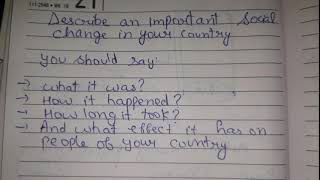 21
Describe an important social
change in your country
you should say:
→ what it was?
→ How it happened?
→ How long it took?
→ And what effect it has on
people of your country